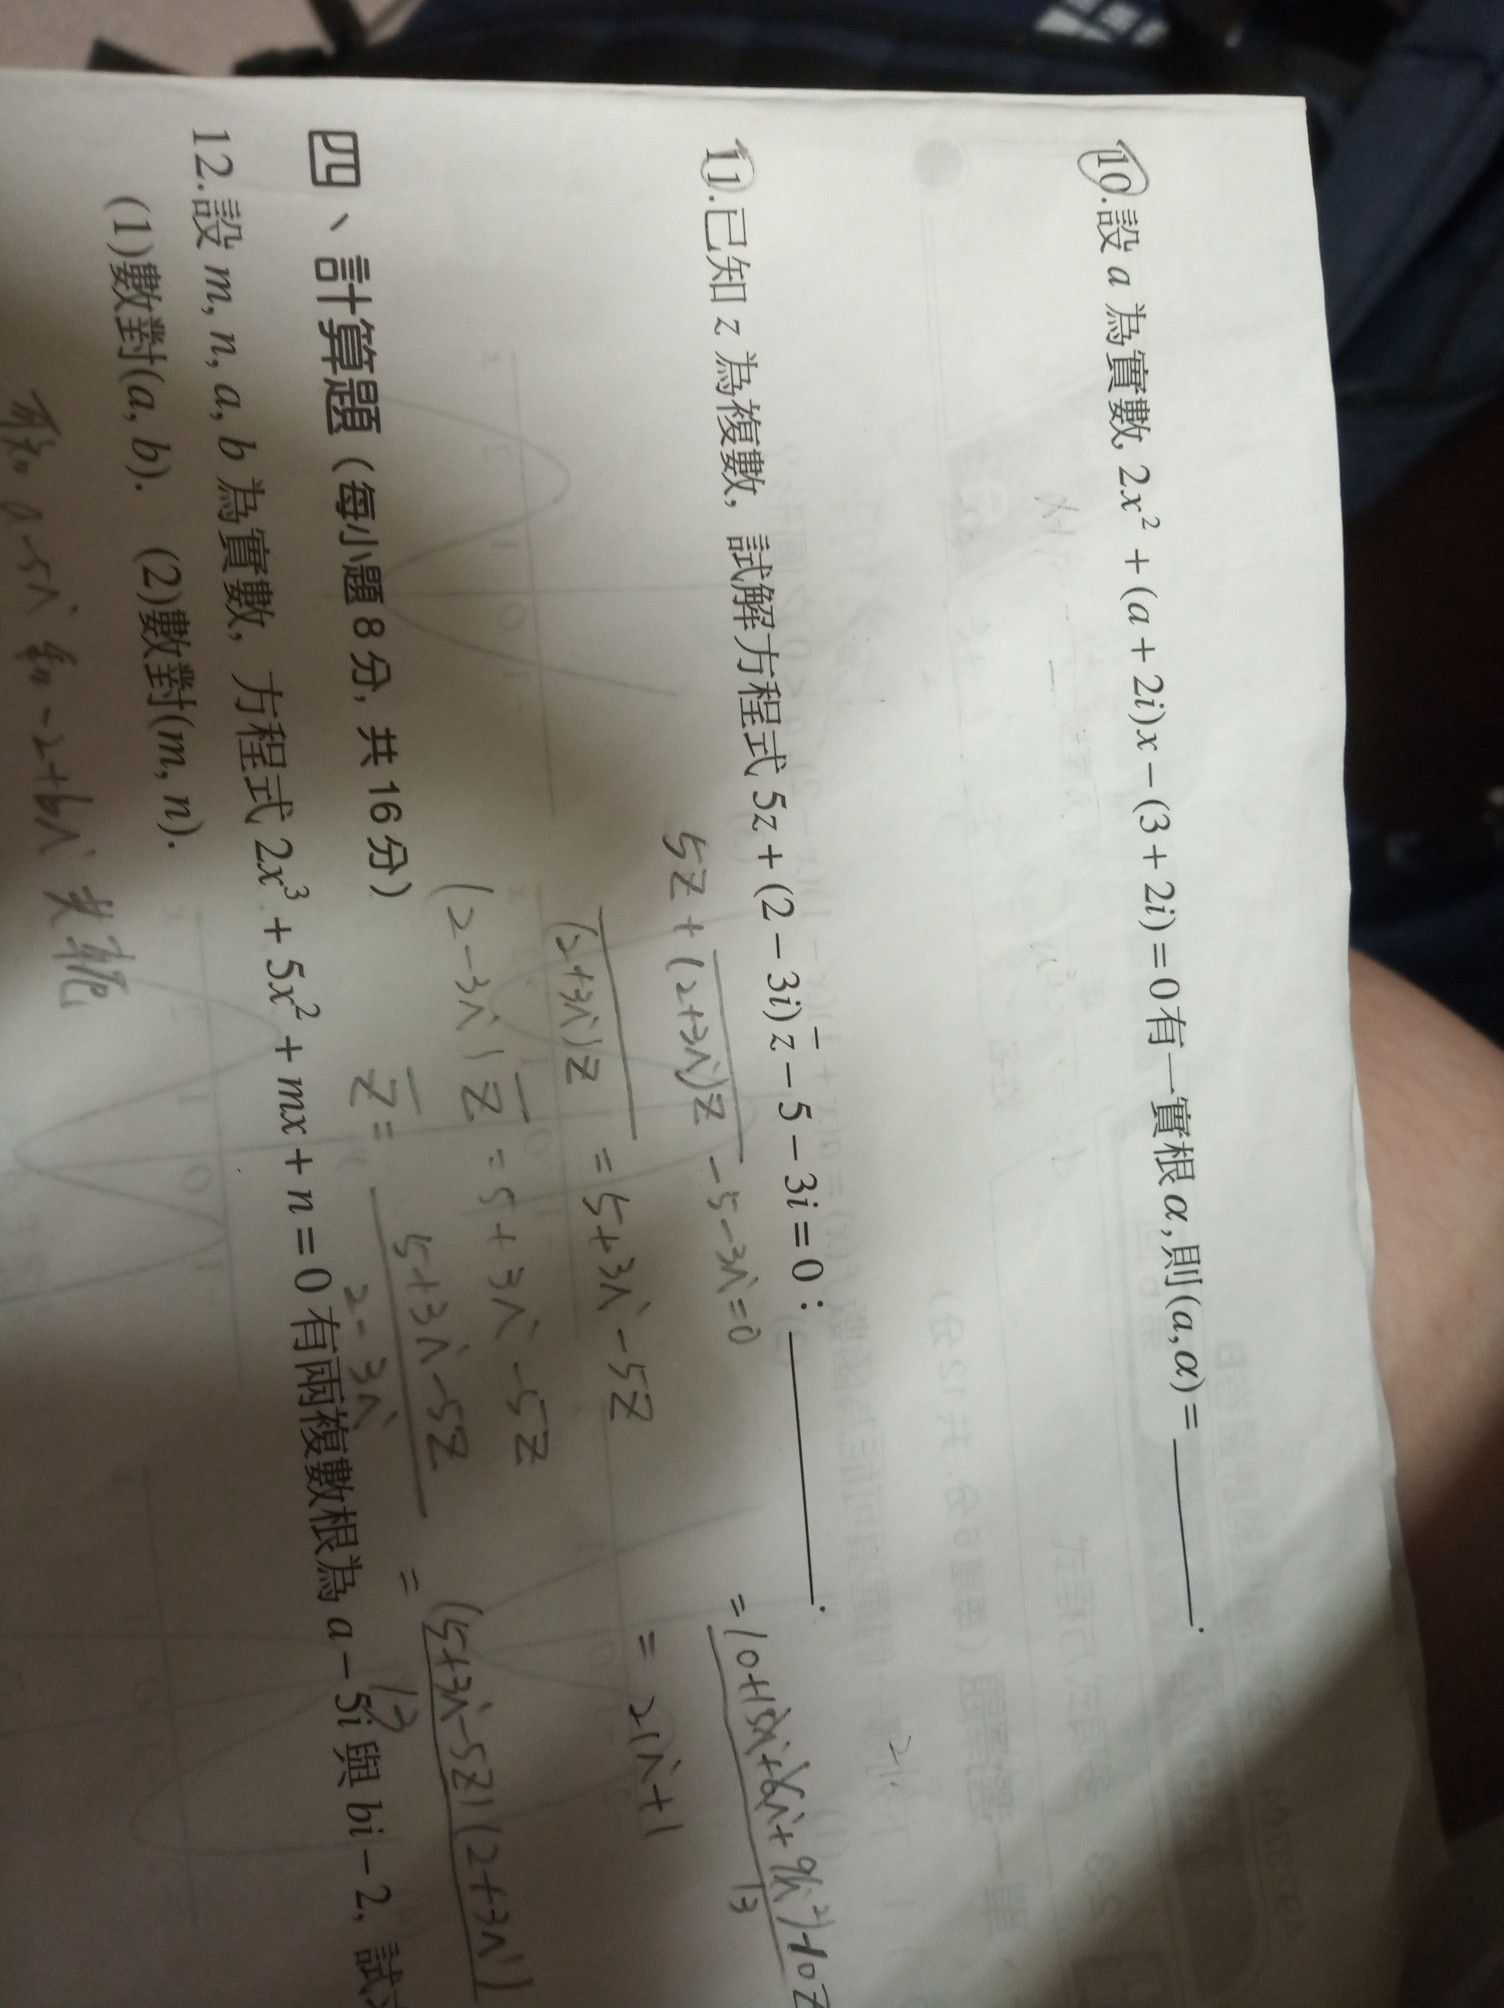 10.設 a 為實數, 2x² + (a + 2i)x − (3 + 2i) = 0 有一實根 α, 則(a, α) = ________.
11.已知 z 為複數, 試解方程式 5z + (2 − 3i)z̄ − 5 − 3i = 0: ________.
5z + \overline{(2+3i)z} − 5 − 3i = 0
\overline{(2+3i)z} = 5+3i − 5z
(2−3i) z̄ = 5 + 3i − 5z
z̄ = \frac{5+3i−5z}{2−3i} = \frac{(5+3i−5z)(2+3i)}{13}
= 21i+1
四、計算題(每小題 8 分, 共 16 分)
12.設 m, n, a, b 為實數, 方程式 2x³ + 5x² + mx + n = 0 有兩複數根為 a − 5i 與 bi − 2,
(1)數對(a, b). (2)數對(m, n).
a−5i 和 −2+bi 共軛